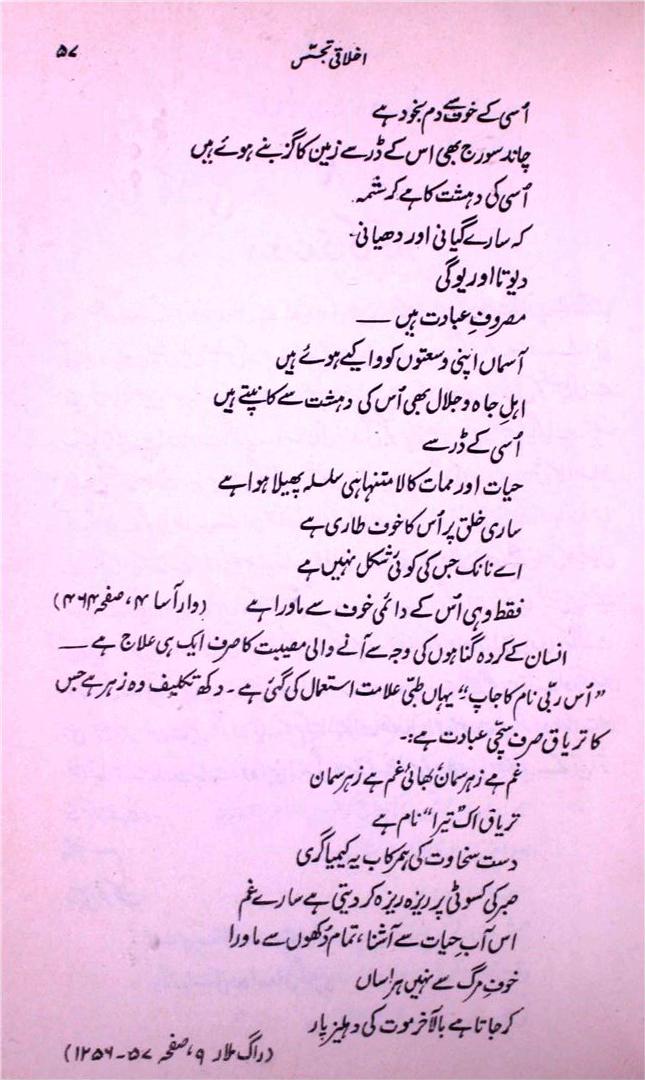 ۵۷
اخلاقی تجسّس
اُسی کے خوف سے دم بخود ہے
چاند سورج بھی اس کے ڈر سے زمین کا گز بنے ہوئے ہیں
اُسی کی دہشت کا ہے کرشمہ
کہ سارے گیانی اور دھیانی۔
دیوتا اور یوگی
مصروفِ عبادت ہیں ——
آسماں اپنی وسعتوں کو وا کیے ہوئے ہیں
اہلِ جاہ و جلال بھی اُس کی دہشت سے کانپتے ہیں
اُسی کے ڈر سے
حیات اور ممات کا لامتنہاہی سلسلہ پھیلا ہوا ہے
ساری خلق پر اُس کا خوف طاری ہے
اے نانک جس کی کوئی شکل نہیں ہے
فقط وہی اُس کے دائمی خوف سے ماورا ہے (وار آسا ۴، صفحہ ۴۶۴)
انسان کے کردہ گناہوں کی وجہ سے آنے والی مصیبت کا صرف ایک ہی علاج ہے ——
”اُس ربّی نام کا جاپ“ یہاں طبّی علامت استعمال کی گئی ہے۔ دکھ تکلیف وہ زہر ہے جس
کا تریاق صرف سچّی عبادت ہے:۔
غم ہے زہر سمان بھائی غم ہے زہر سمان
تریاق اک ”تیرا“ نام ہے
دست سخاوت کی ہمرکاب یہ کیمیا گری
صبر کی کسوٹی پر ریزہ ریزہ کر دیتی ہے سارے غم
اس آبِ حیات سے آشنا، تمام دُکھوں سے ماورا
خوفِ مرگ سے نہیں ہراساں
کر جاتا ہے بالآخر موت کی دہلیز پار
(راگ ملار ۹، صفحہ ۵۷-۱۲۵۶)